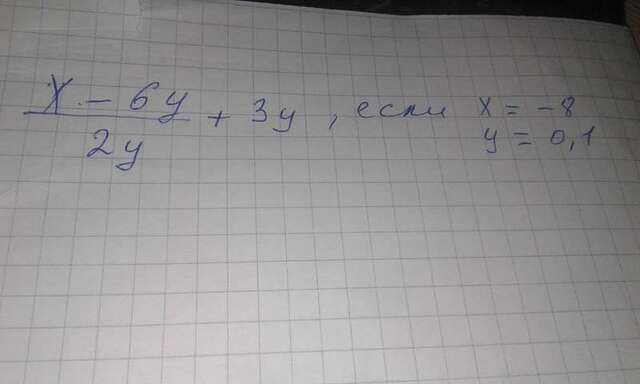 x - 6y
2y
+ 3y , если x = -8
y = 0,1